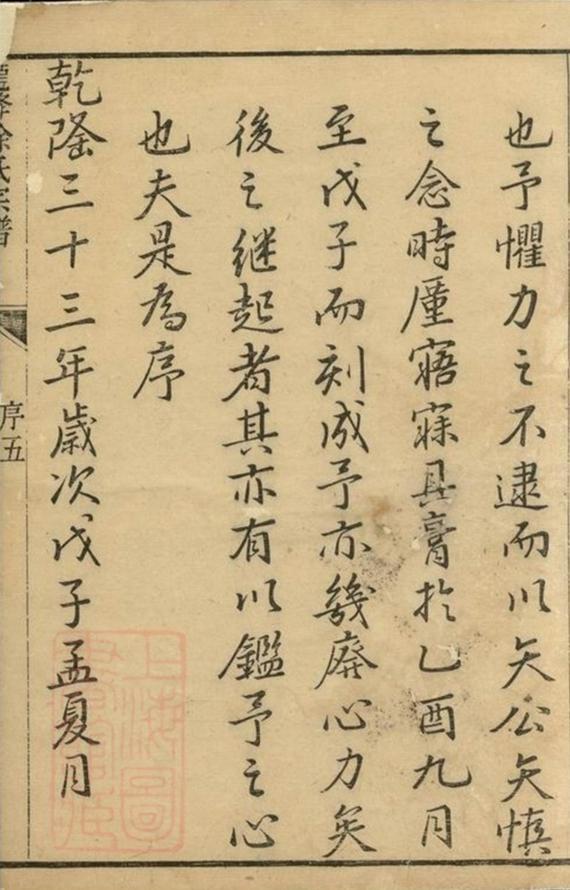 也予懼力之不逮而以矢公矢慎
之念時廑寤寐具膏於乙酉九月
至戊子而刻成予亦幾廢心力矣
後之継起者其亦有以鑑予之心
也夫是為序
乾隆三十三年歲次戊子孟夏月
徐氏宗譜
序五
上海圖書館藏